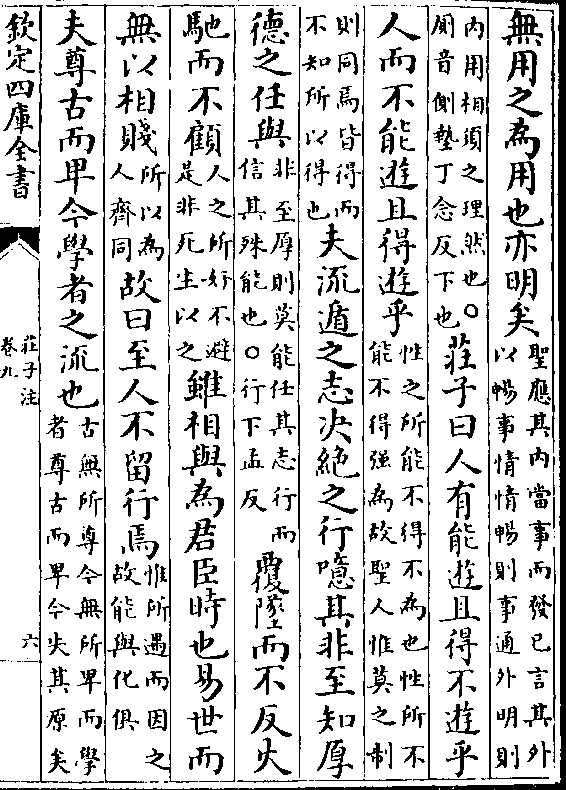 無用之為用也亦明矣聖應其内當事而發已言其外以暢事情情暢則事通外明則
内用相須之理然也○厠音側墊丁念反下也莊子曰人有能遊且得不遊乎
人而不能遊且得遊乎性之所能不得不為也性所不能不得强為故聖人惟莫之制
則同焉皆得而不知所以得也夫流遁之志决絶之行噫其非至知厚
德之任與非至厚則莫能任其志行而信其殊能也○行下孟反覆墜而不反火
馳而不顧人之所好不避是非死生以之雖相與為君臣時也易世而
無以相賤所以為人齊同故曰至人不留行焉惟所遇而因之故能與化俱
夫尊古而卑今學者之流也古無所尊今無所卑而學者尊古而卑今失其原矣
欽定四庫全書
莊子注
卷九
六